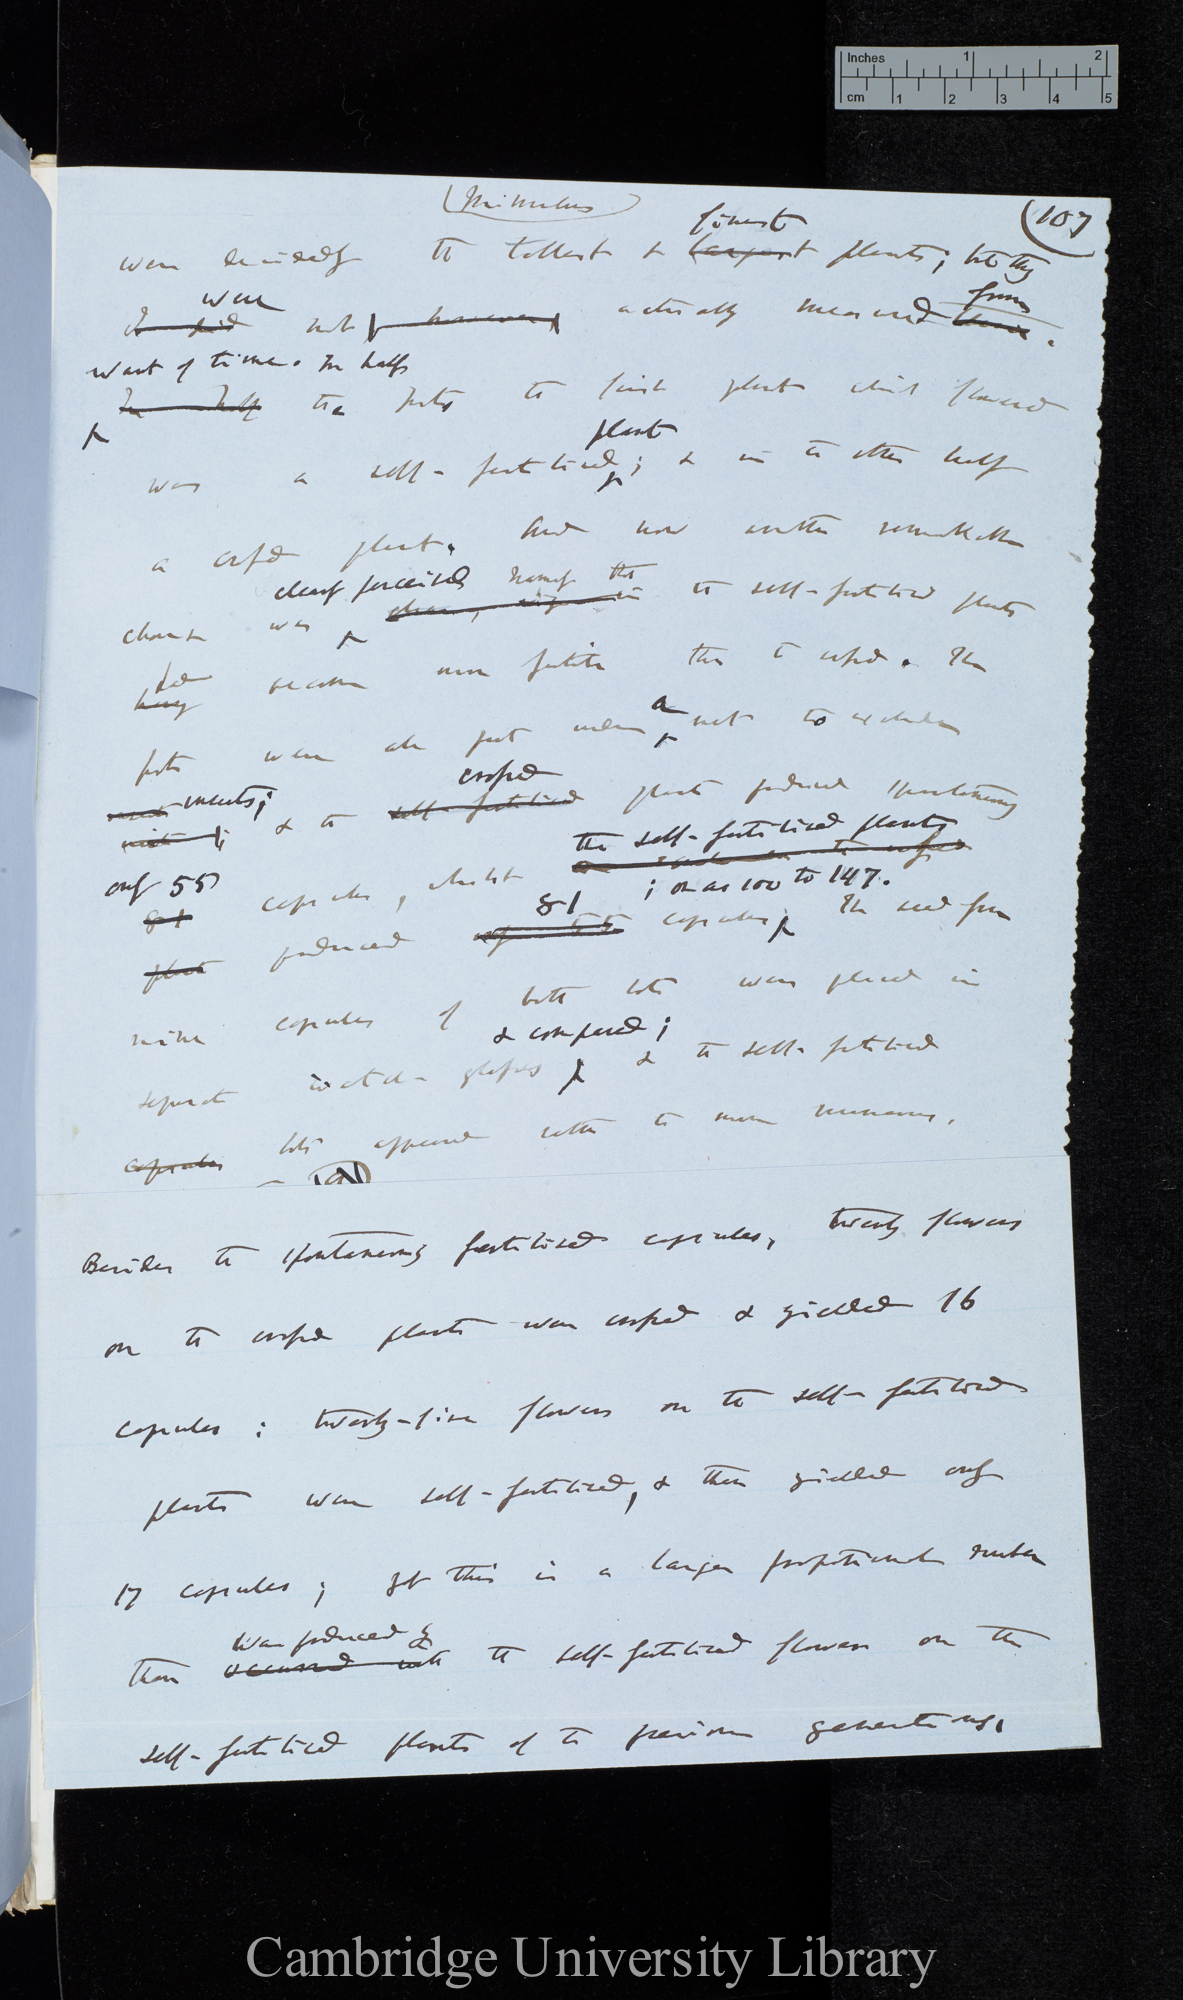 Inches 1 2
cm 1 2 3 4 5
(Mimulus)
(107
finest
were decidedly the tallest & largest plants; but they
were from
I did not, however, actually measured
want of time. In half
In half the pots the first plant which flowered
plant
was a self-fertilised; & in the other half
a crossed plant. And now another remarkable
clearly perceived, namely that
change was in the self-fertilised plants
had
have become more fertile than the crossed. The
a
pots were all put under net to exclude
crossed
insects;
& the self-fertilised plants produced spontaneously
the self-fertilised plants
only 55
81 capsules, whilst
81 ; or as 100 to 147.
plants produced only 55 capsules, The seed from
nine capsules of both lots were placed in
& compared;
separate watch-glasses & the self-fertilised
capsules lots appeared rather the more numerous.
Besides the spontaneously fertilised capsules, twenty flowers
on the crossed plants were crossed & yielded 16
capsules; twenty-five flowers on the self-fertilised
plants were self-fertilised, & these yielded only
17 capsules; yet this is a larger proportional number
was produced by
than occurred with the self-fertilised flowers on the
self-fertilised plants of the previous generations.
Cambridge University Library